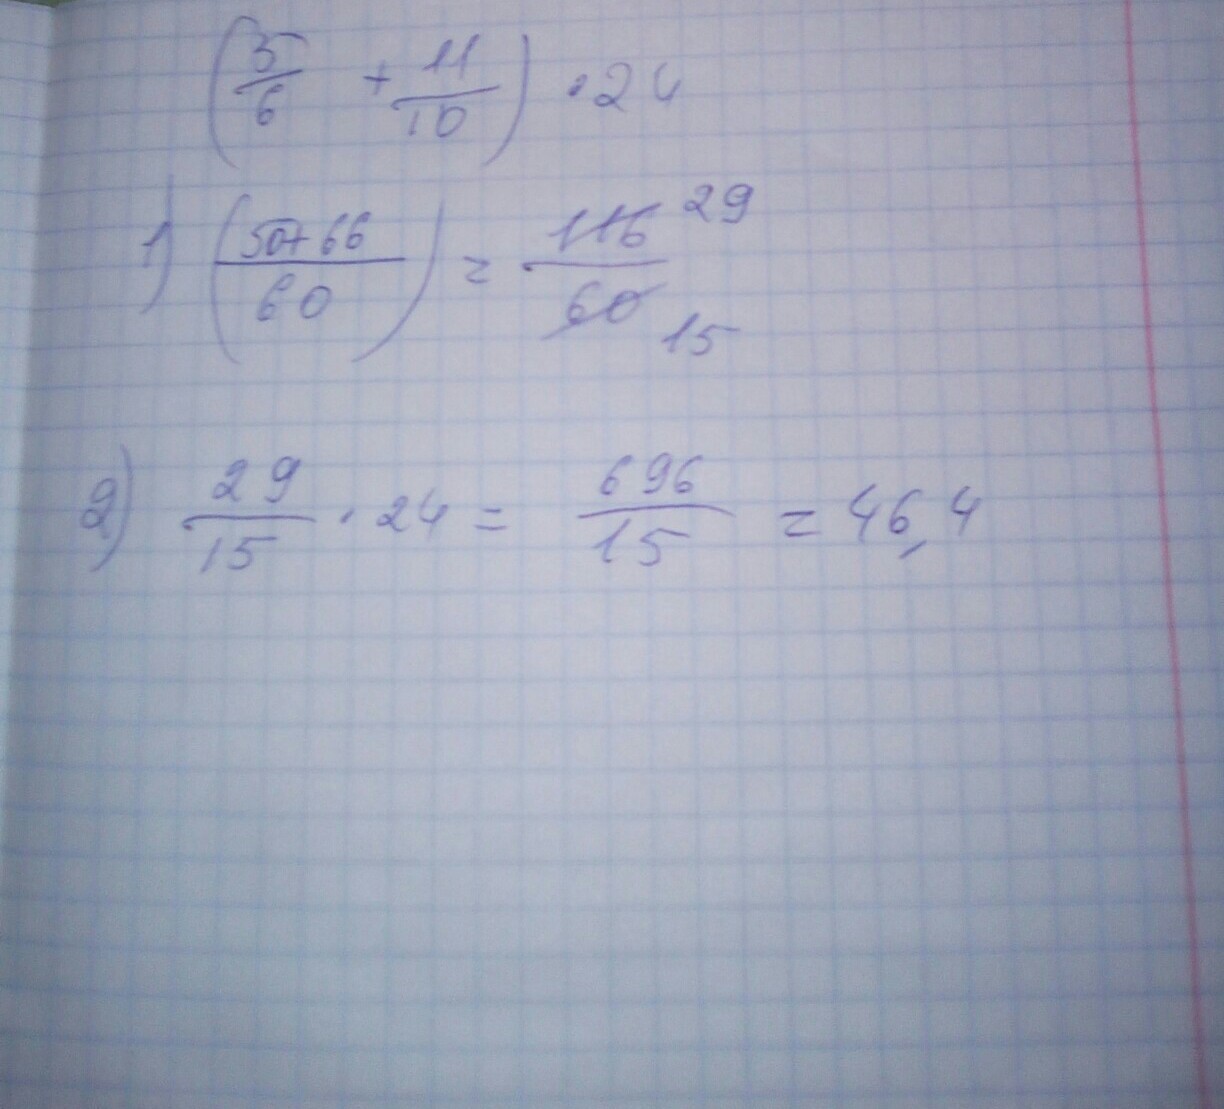 (5/6 + 11/10) · 24
1) (50+66/60) = 116/60 29 15
2) 29/15 · 24 = 696/15 = 46,4